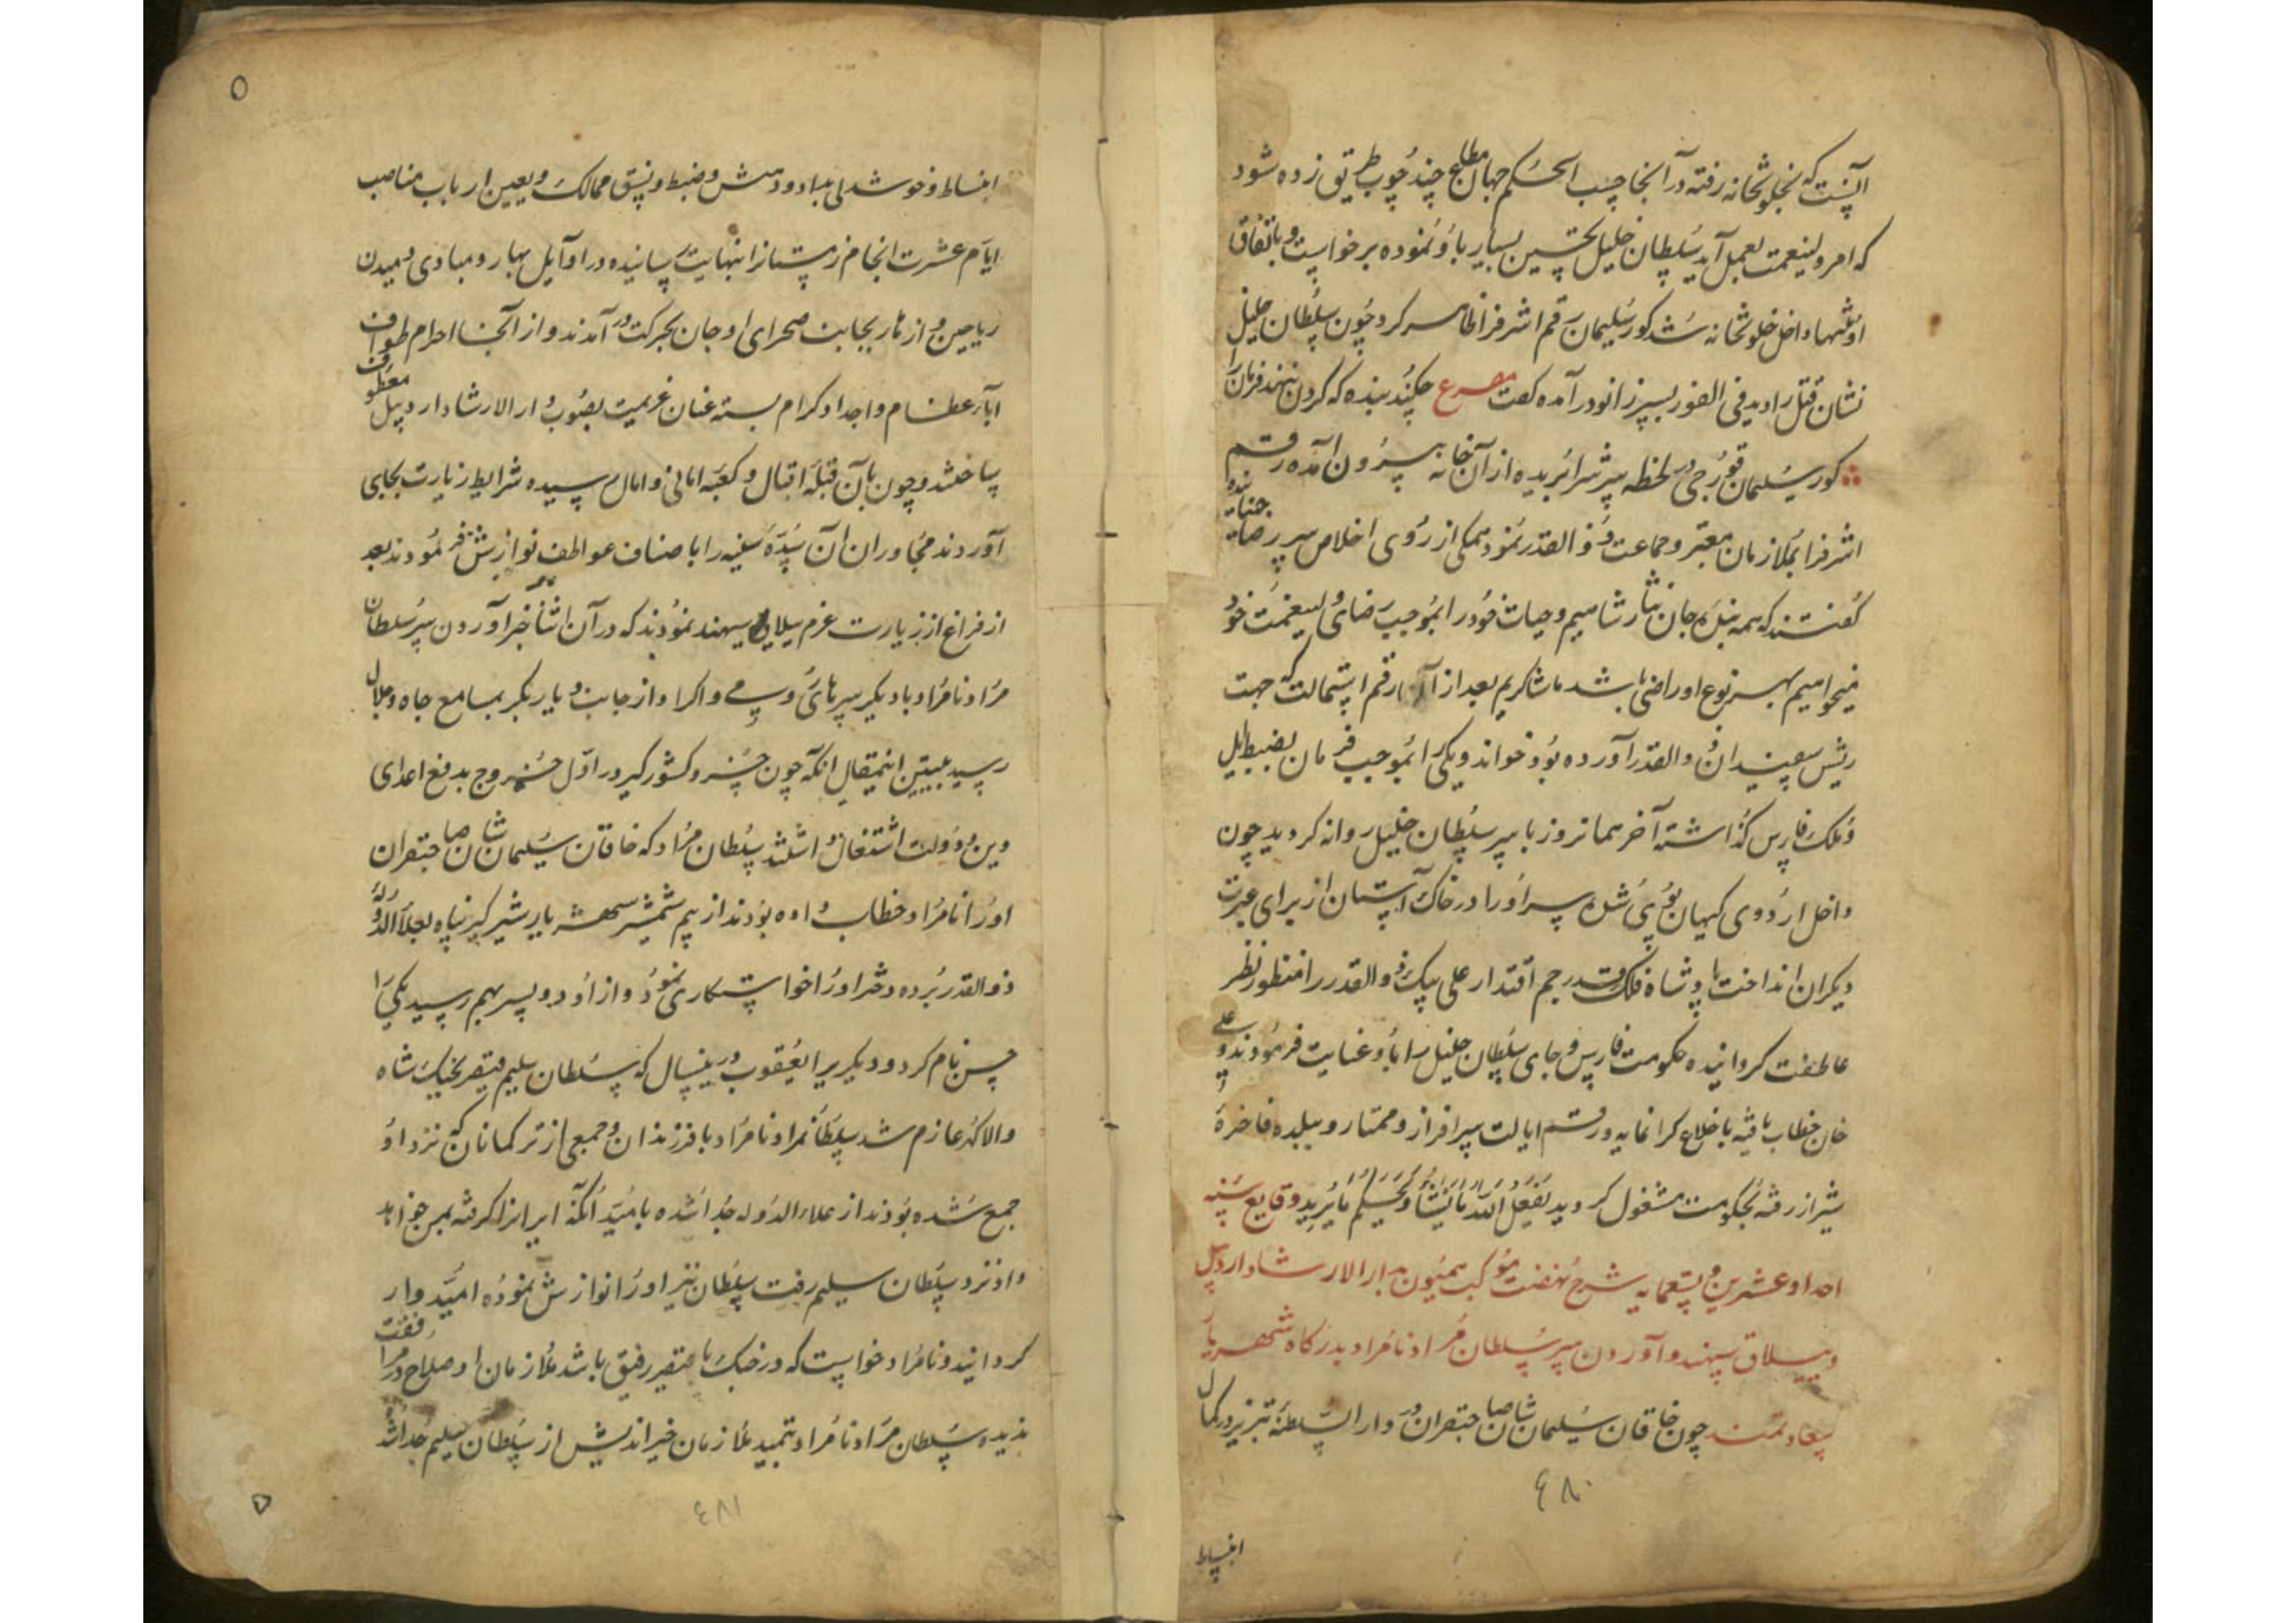 آنست که بخلوتخانه رفته در آنجا حسب الحکم جهان مطاع چند چوب طریق زده شود
که امر ولینعمت بعمل آید سلطان خلیل تحسین بسیار باو نموده برخواست و باتفاق
اوتنها داخل خلوتخانه شد کور سلیمان رقم اشرف را ظاهر کرد چون سلطان خلیل
نشان قتل را دید فی الفور بسر زانو در آمده گفت مصرع چکند بنده که گردن ننهد فرمانرا
کور سلیمان قورچی در لحظه سرش را بریده از آن خانه بیرون آمده رقم
اشرف را بملازمان معتبر و جماعت ذوالقدر نمود همکی از روی اخلاص سر بر رضا جنبانیده
گفتند که همه بنده جان نثار شاهیم و حیات خود را بموجب رضای ولینعمت خود
میخواهیم بهر نوع او راضی باشد ما شاکریم بعد از آن رقم استمالت که جهت
ریش سفیدان ذوالقدر آورده بود خواند و یکی را بموجب فرمان بضبط ایل
و ملک فارس گذاشته آخر همانروز با سر سلطان خلیل روانه گردید چون
داخل اردوی کیهان پوی شده سر او را در خاک آستان از برای عبرت
دیگران انداخت پادشاه فلک قدر جم اقتدار علی بیک ذوالقدر را منظور نظر
عاطفت گردانیده حکومت فارس و جای سلطان خلیل را باو عنایت فرمودند و علی
خان خطاب یافته با خلاع گرانمایه و رقم ایالت سرافراز و ممتاز و ببلده فاخره
شیراز رفته بحکومت مشغول گردید یفعل الله ما یشاء و یحکم ما یرید وقایع سنه
احدا و عشرین و تسعمایه شرح نهضت موکب همیون بدار الارشاد اردبیل
و ییلاق سهند و آوردن سر سلطان مراد نامراد بدرگاه شهریار
سعادتمند چون خاقان سلیمان شان صاحبقران در دار السلطنه تبریز در کمال
٤٨٠
انبساط
انبساط و خوشدلی بداد و دهش و ضبط و نسق ممالک و تعیین ارباب مناصب
ایام عشرت انجام زمستانرا بنهایت رسانیده در اوایل بهار و مبادی دمیدن
ریاحین و ازهار بجانب صحرای اوجان بحرکت در آمدند و از آنجا احرام طواف
آباء عظام و اجداد کرام بسته عنان عزیمت بصوب دار الارشاد اردبیل معطوف
ساختند و چون بآن قبله اقبال و کعبه امانی و امال رسیده شرایط زیارت بجای
آوردند مجاوران آن سده سنیه را باصناف عواطف نوازش فرمودند بعد
از فراغ از زیارت عزم ییلاق سهند نمودند که در آن اثنا خبر آوردن سر سلطان
مراد نامراد با دیگر سرهای و اکراد از جانب دیار بکر بمسامع جاه و جلال
رسید تبیین اینمقال آنکه چون خسرو کشور گیر در اول خروج بدفع اعدای
دین و دولت اشتغال داشتند سلطان مراد که خاقان سلیمان شان صاحبقران
او را نامراد خطاب داده بودند از بیم شمشیر شهریار شیر گیر پناه بعلاء الدوله
ذوالقدر برده دختر او را خواستکاری نمود و از او دو پسر بهم رسید یکی را
حسن نام کرد و دیگریرا یعقوب در ینسال که سلطان سلیم قیصر بجنک شاه
والا گهر عازم شد سلطانمراد نامراد با فرزندان و جمعی از ترکمانان که نزد او
جمع شده بودند از علاء الدوله جدا شده بامید آنکه ایرانرا گرفته بمن خواهد
داد نزد سلطان سلیم رفت سلطان نیز او را نوازش نموده امیدوار
گردانید و نامراد خواست که در جنک با قیصر رفیق باشد ملازمان او صلاح در مرافقت
ندیده سلطان مراد نامراد بتمهید ملازمان خیراندیش از سلطان سلیم جدا شد
٤٨١